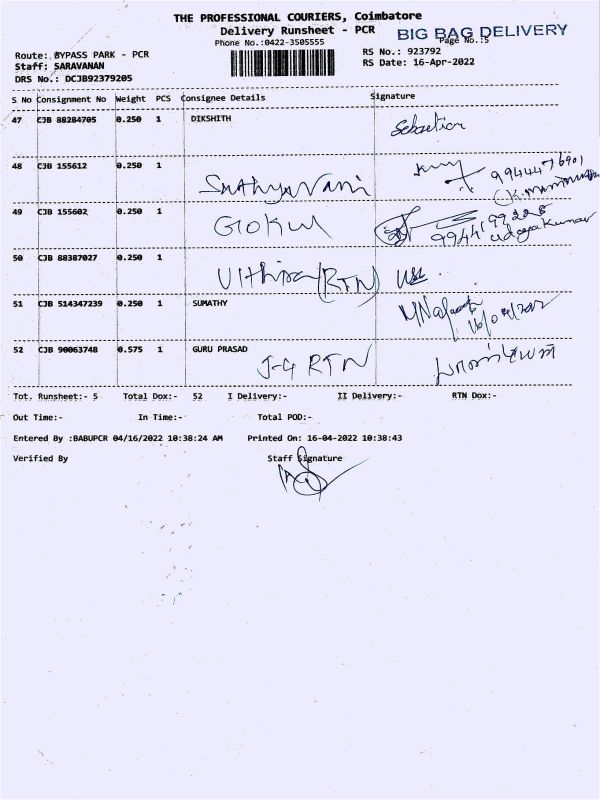 THE PROFESSIONAL COURIERS, Coimbatore
Delivery Runsheet - PCR
BIG BAG DELIVERY
Phone No.:0422-3505555
Page No.:5
Route: BYPASS PARK - PCR
RS No.: 923792
Staff: SARAVANAN
RS Date: 16-Apr-2022
DRS No.: DCJB92379205
S No Consignment No Weight PCS Consignee Details Signature
47 CJB 88284705 0.250 1 DIKSHITH
48 CJB 155612 0.250 1
Sathyavani 9944476901
49 CJB 155602 0.250 1
Gokul
udayakumar
50 CJB 88387027 0.250 1
(RTN)
51 CJB 514347239 0.250 1 SUMATHY
52 CJB 90063748 0.575 1 GURU PRASAD
J-4 RTN
Tot. Runsheet:- 5 Total Dox:- 52 I Delivery:- II Delivery:- RTN Dox:-
Out Time:- In Time:- Total POD:-
Entered By :BABUPCR 04/16/2022 10:38:24 AM Printed On: 16-04-2022 10:38:43
Verified By Staff Signature